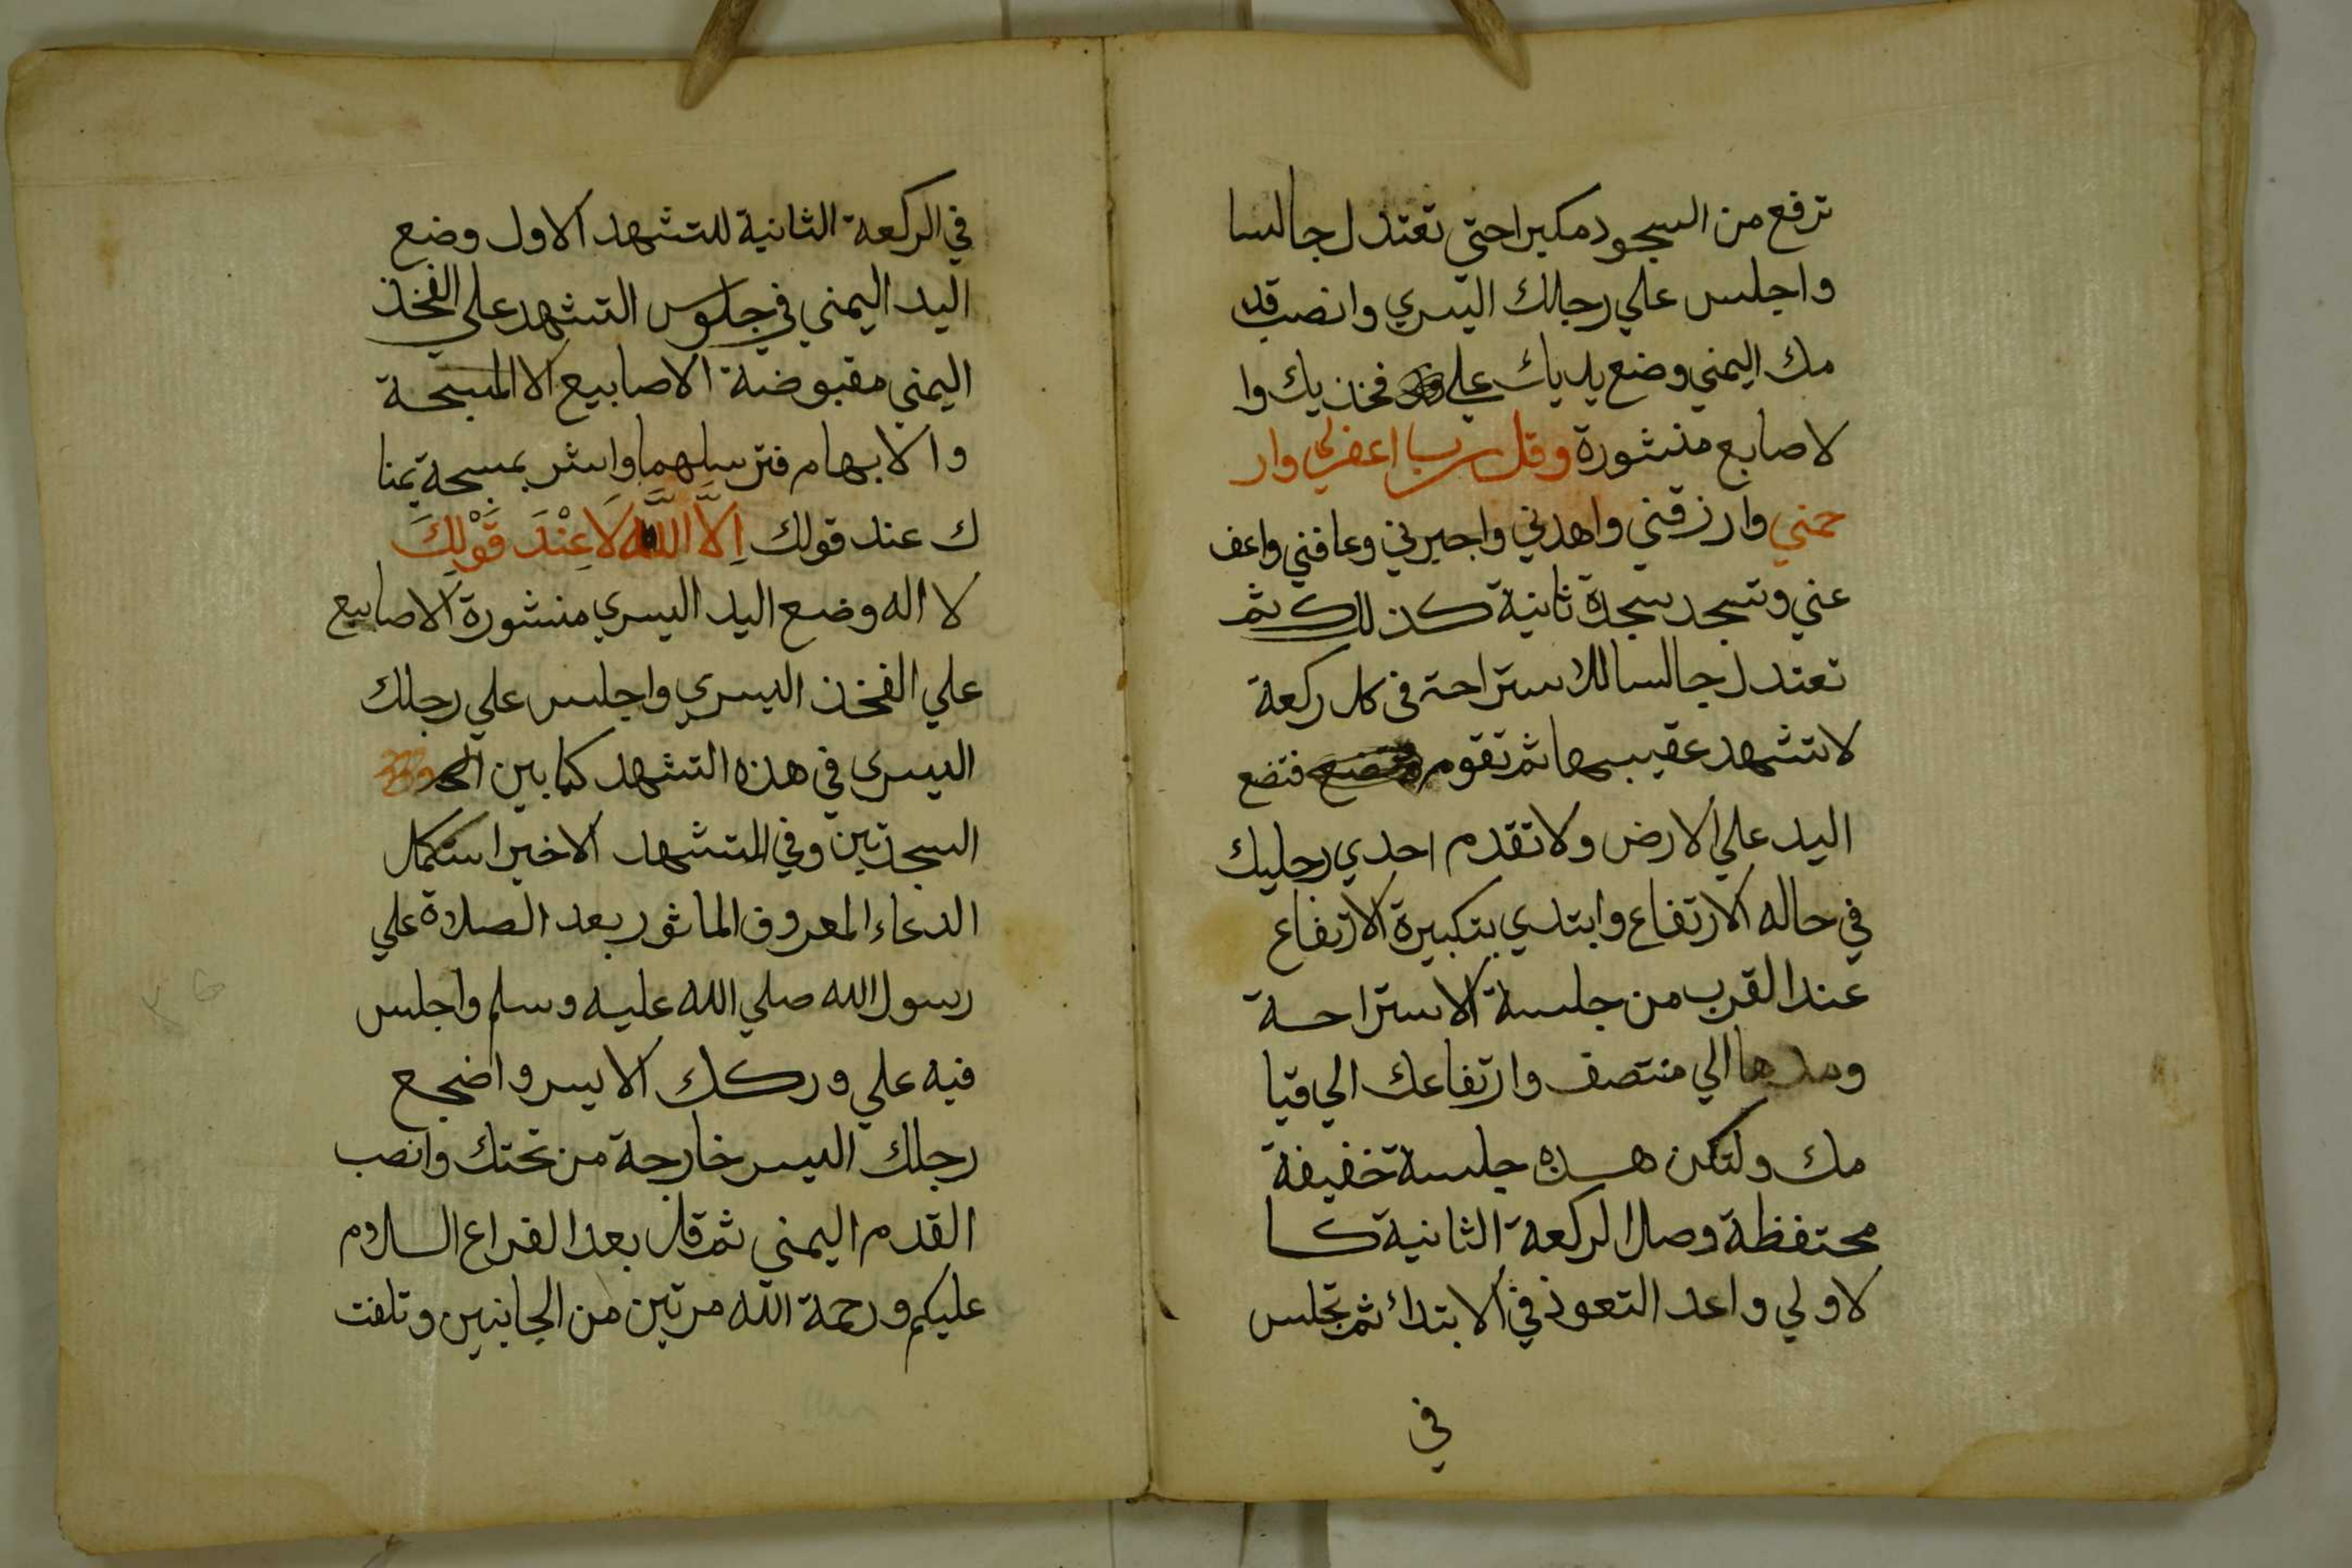 ترفع من السجود مكبرا حتي تعتدل جالسا
واجلس علي رجلك اليسري وانصب قد
مك اليمني وضع يديك علي فخذيك وا
لاصابع منشورة وقل رب اغفرلي وار
حمني وارزقني واهدني واجبرني وعافني واعف
عني وتسجد سجدة ثانية كذلك ثم
تعتدل جالسا للاستراحة في كل ركعة
لا تتشهد عقيبها ثم تقوم فتضع
اليد علي الارض ولا تقدم احدي رجليك
في حاله الارتفاع وابتدي بتكبيرة الارتفاع
عند القرب من جلسة الاستراحة
ومدها الي منتصف وارتفاعك الي قيا
مك ولتكن هذه جلسة خفيفة
محتفظة وصل الركعة الثانية كا
لاولي واعد التعوذ في الابتدائ ثم تجلس
في
في الركعة الثانية للتشهد الاول وضع
اليد اليمني في جلوس التشهد علي الفخذ
اليمني مقبوضة الاصابيع الا المسبحة
والابهام فترسلهما واشر بمسبحة يمنا
ك عند قولك اِلَّا اللَّه لَا عِنْدَ قَوْلِكَ
لا اله وضع اليد اليسري منشورة الاصابيع
علي الفخذ اليسري واجلس علي رجلك
اليسري في هذه التشهد كما بين
السجدتين وفي التشهد الاخير استكمال
الدعاء المعروف الماثور بعد الصلاة علي
رسول الله صلي الله عليه وسلم واجلس
فيه علي وركك الايسر واضجع
رجلك اليسر خارجة من تحتك وانصب
القدم اليمني ثم قل بعد الفراغ السلام
عليكم ورحمة الله مرتين من الجانبين وتلفت